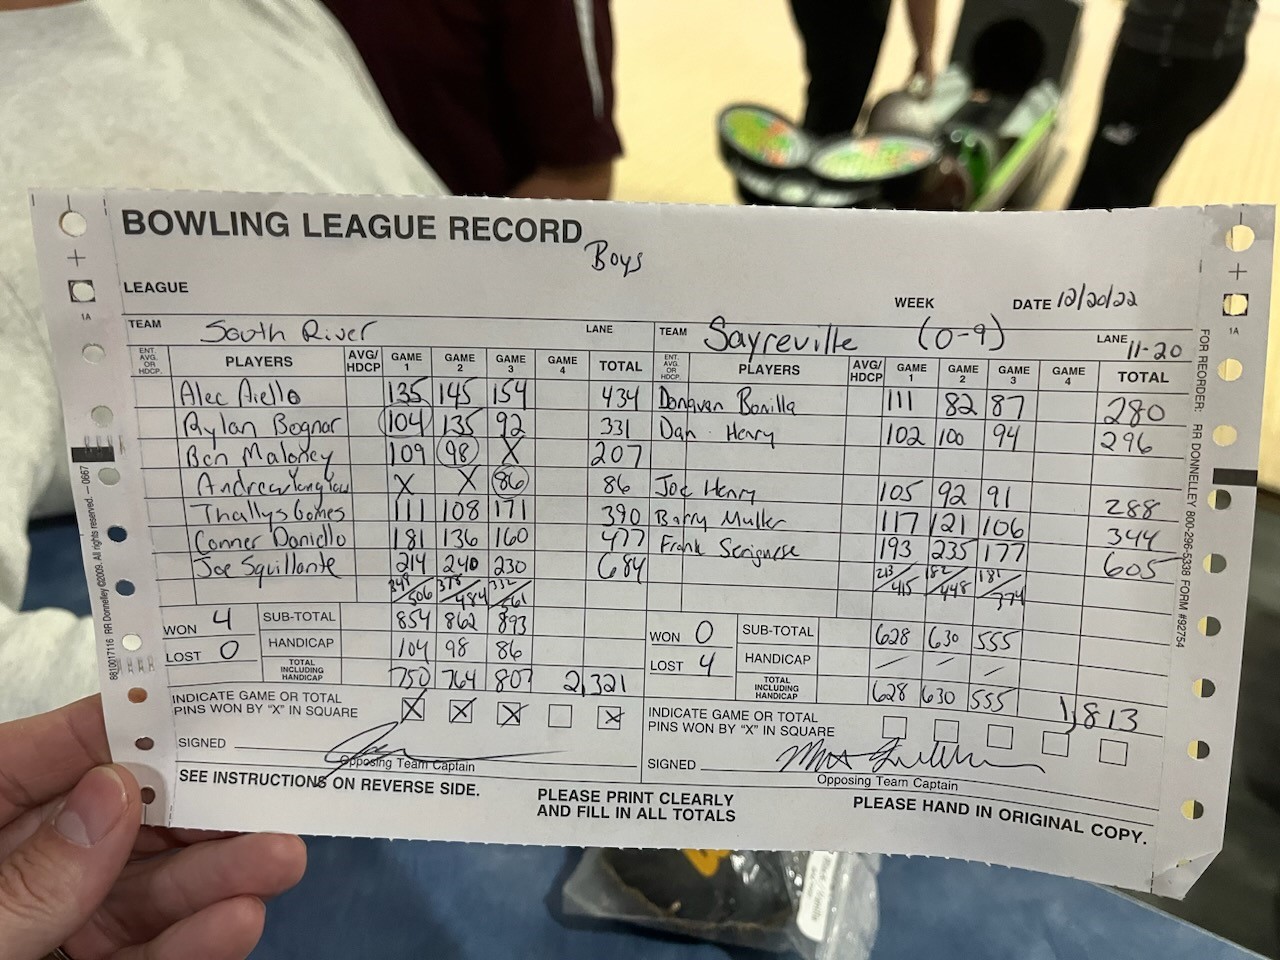 BOWLING LEAGUE RECORD
Boys
LEAGUE WEEK DATE 12/20/22
TEAM South River LANE TEAM Sayreville (0-9) LANE 11-20
ENT. AVG. OR HDCP. PLAYERS AVG/HDCP GAME 1 GAME 2 GAME 3 GAME 4 TOTAL ENT. AVG. OR HDCP. PLAYERS AVG/HDCP GAME 1 GAME 2 GAME 3 GAME 4 TOTAL
Alec Aiello 135 145 154 434 Donovan Bonilla 111 82 87 280
Rylan Bognar 104 135 92 331 Dan Henry 102 100 94 296
Ben Maloney 109 98 X 207
Andrew X X 86 86 Joe Henry 105 92 91 288
Thallys Gomes 111 108 171 390 Barry Muller 117 121 106 344
Conner Daniello 181 136 160 477 Frank 193 235 177 605
Joe Squillante 214 240 230 684
348/506 378/484 332/561 213/415 182/448 181/374
WON 4 SUB-TOTAL 854 862 893 WON 0 SUB-TOTAL 628 630 555
LOST 0 HANDICAP 104 98 86 LOST 4 HANDICAP / / /
TOTAL INCLUDING HANDICAP 750 764 807 2,321 TOTAL INCLUDING HANDICAP 628 630 555 1,813
INDICATE GAME OR TOTAL PINS WON BY "X" IN SQUARE X X X X INDICATE GAME OR TOTAL PINS WON BY "X" IN SQUARE
SIGNED SIGNED
Opposing Team Captain Opposing Team Captain
SEE INSTRUCTIONS ON REVERSE SIDE. PLEASE PRINT CLEARLY AND FILL IN ALL TOTALS PLEASE HAND IN ORIGINAL COPY.
1A
1A
8810017116 RR Donnelley ©2009. All rights reserved. — 0867
FOR REORDER: RR DONNELLEY 800-296-5338 FORM #92754